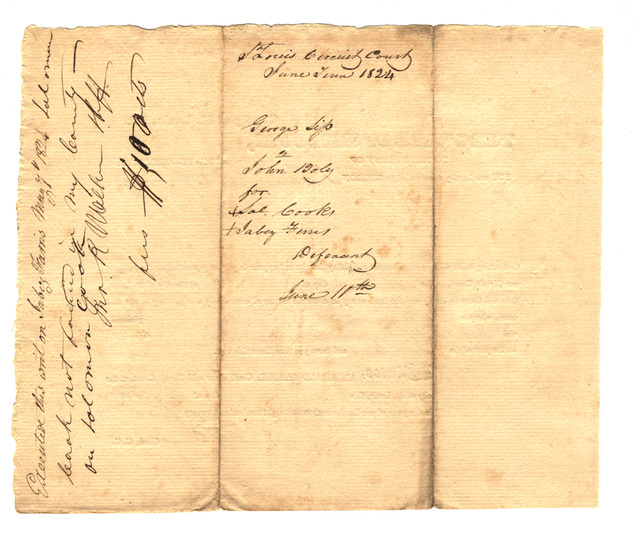 Executed this writ on Jabey Farris May 7th 1824 Solomon
Cook not found in my County —
on Solomon Cook
Jno K Walker Shff
fees $1.00 cts
St Louis Circuit Court
June Term 1824
George Sip
vs
John Boly
for
+ Sol. Cooks
+ Jabey Ferris
Defenant
June 11th